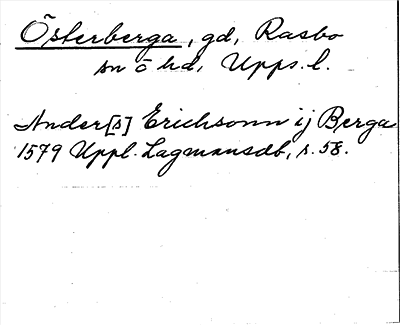 Österberga, gd, Rasbo
sn o hd, Upps. l.
Ander[s] Erichsonn ij Berga
1579 Uppl. Lagmansdb, s. 58.